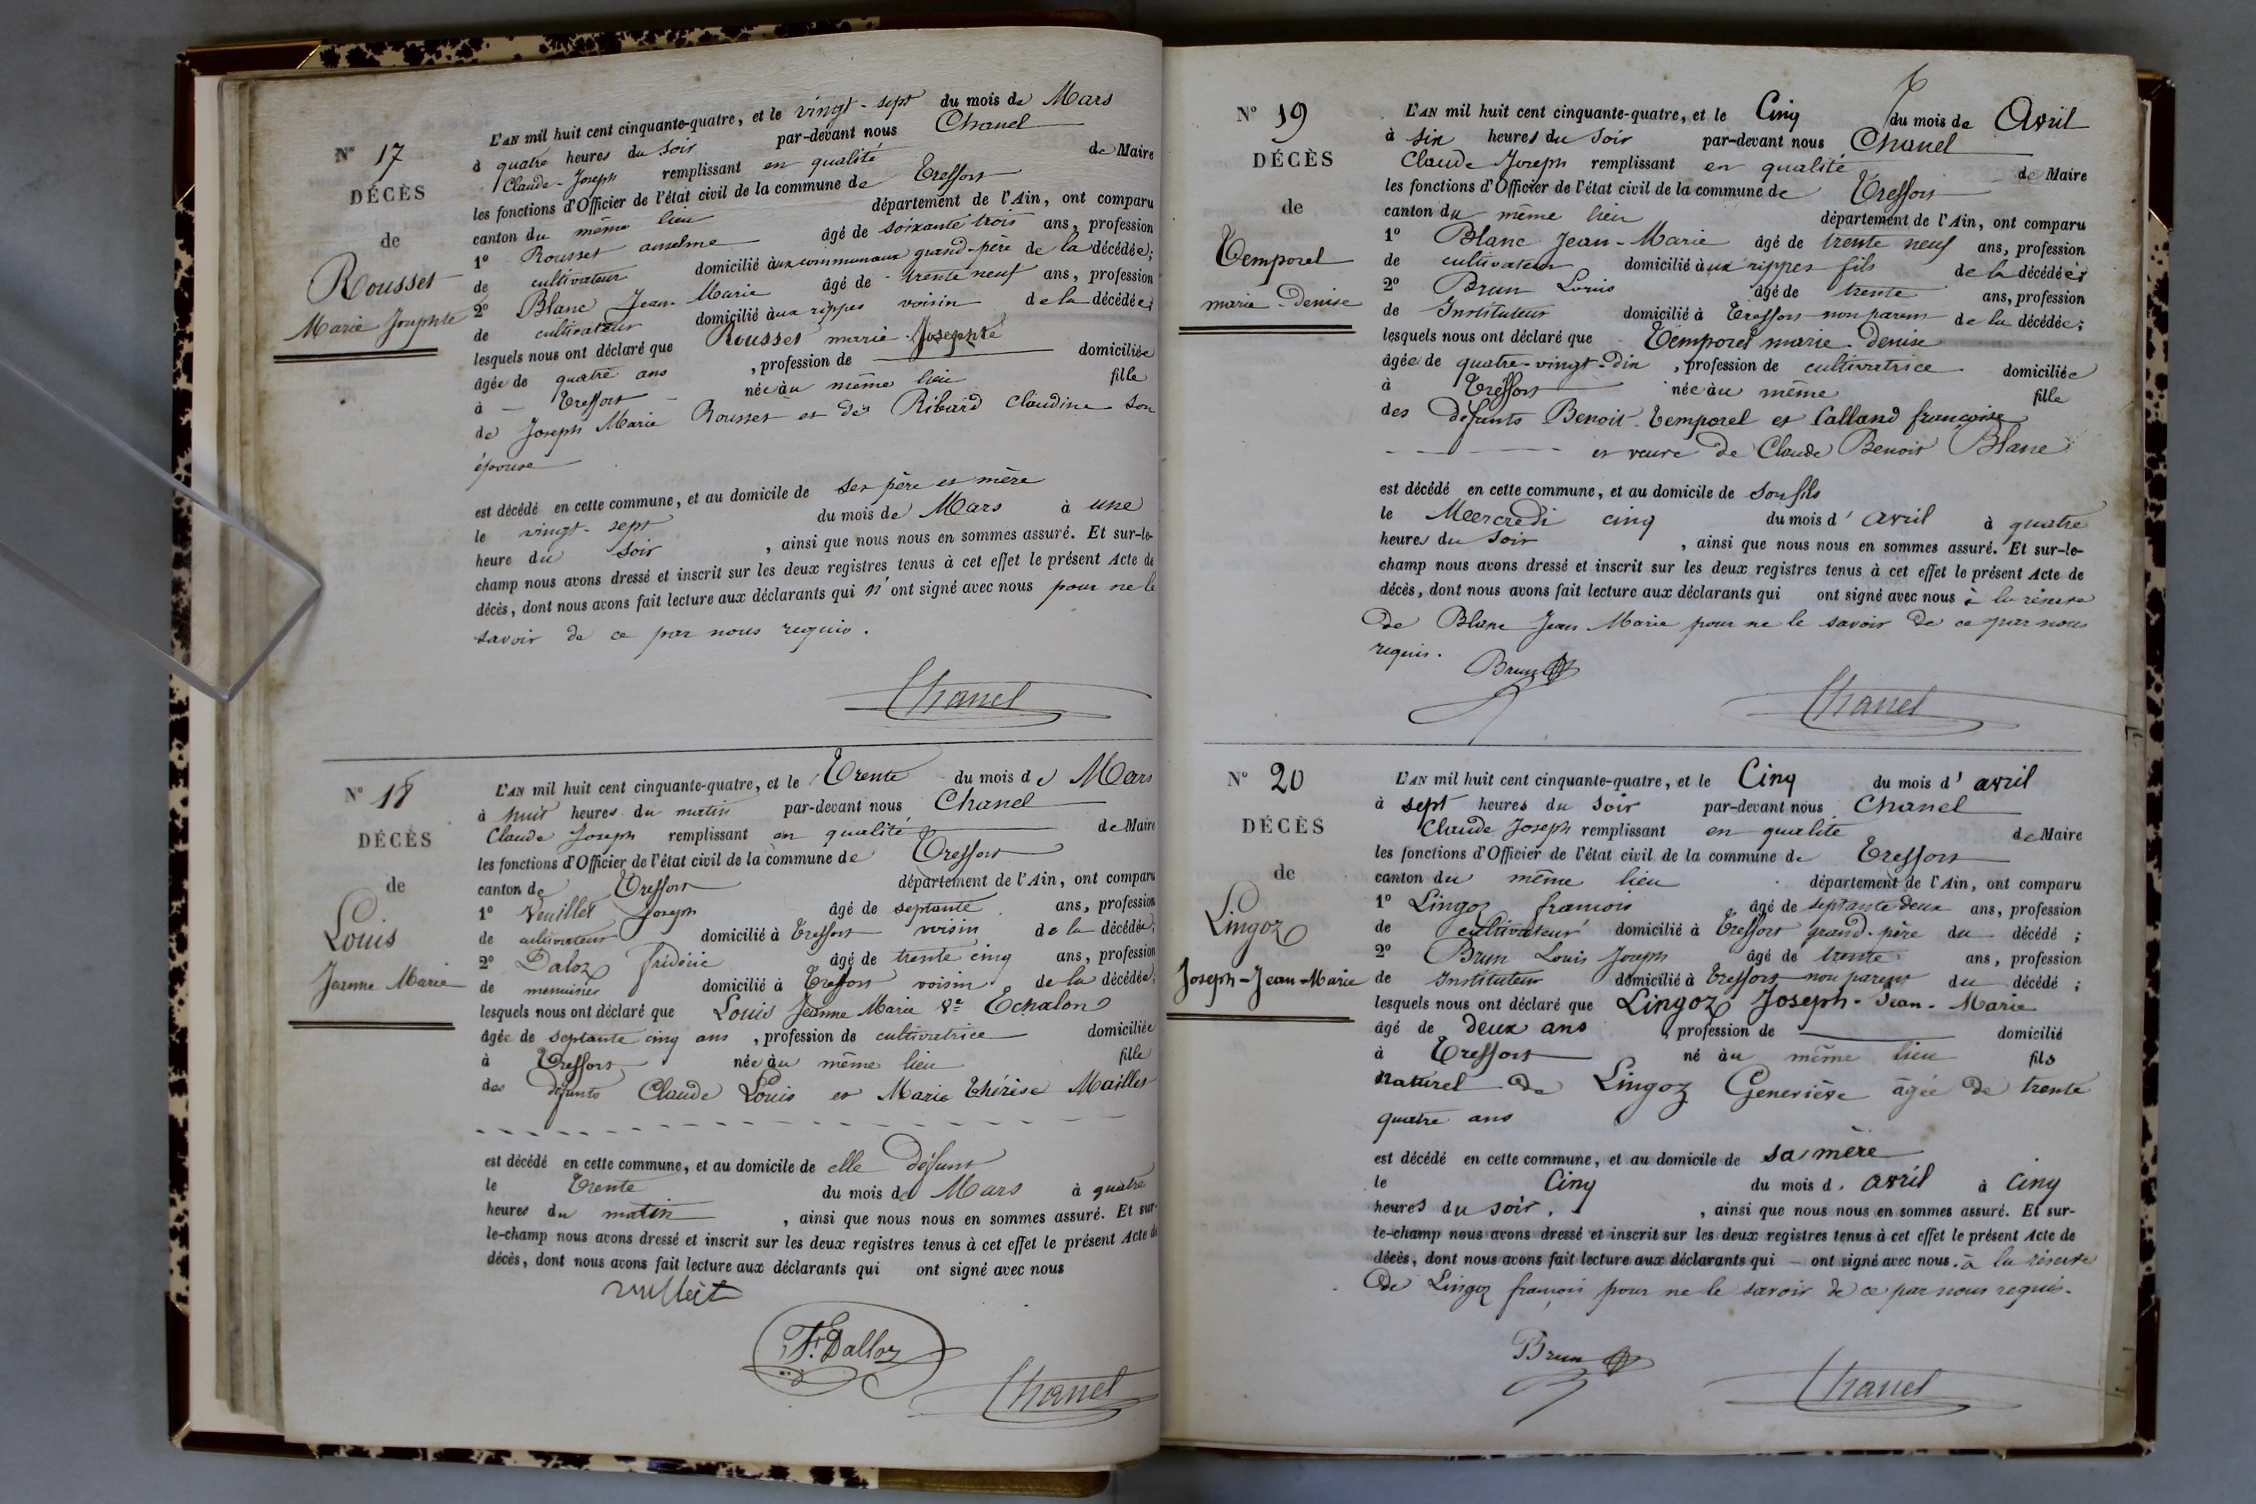 N° 17
DÉCÈS
de
Rousset
Marie Josephte
L'AN mil huit cent cinquante-quatre, et le vingt-sept du mois de Mars
à quatre heures du soir par-devant nous Chanel
Claude-Joseph remplissant en qualité de Maire
les fonctions d'Officier de l'état civil de la commune de Treffort
canton du même lieu département de l'Ain, ont comparu
1° Rousset anselme âgé de soixante trois ans, profession
de cultivateur domicilié aux communaux grand-père de la décédée;
2° Blanc Jean-Marie âgé de trente neuf ans, profession
de cultivateur domicilié aux rippes voisin de la décédée;
lesquels nous ont déclaré que Rousset marie Josephte
âgée de quatre ans , profession de domiciliée
à Treffort née au même lieu fille
de Joseph Marie Rousset et de Ribard Claudine son
épouse
est décédé en cette commune, et au domicile de ses père et mère
le vingt-sept du mois de Mars à une
heure du soir , ainsi que nous nous en sommes assuré. Et sur-le-
champ nous avons dressé et inscrit sur les deux registres tenus à cet effet le présent Acte de
décès, dont nous avons fait lecture aux déclarants qui n'ont signé avec nous pour ne le
savoir de ce par nous requis.
Chanel
N° 18
DÉCÈS
de
Louis
Jeanne Marie
L'AN mil huit cent cinquante-quatre, et le Trente du mois de Mars
à huit heures du matin par-devant nous Chanel
Claude Joseph remplissant en qualité de Maire
les fonctions d'Officier de l'état civil de la commune de Treffort
canton de Treffort département de l'Ain, ont comparu
1° Veuillet Joseph âgé de septante ans, profession
de cultivateur domicilié à Treffort voisin de la décédée;
2° Daloz frédéric âgé de trente cinq ans, profession
de menuisier domicilié à Treffort voisin de la décédée;
lesquels nous ont déclaré que Louis Jeanne Marie Ve Echalon
âgée de septante cinq ans , profession de cultivatrice domiciliée
à Treffort née au même lieu fille
des défunts Claude Louis et Marie Thérèse Maillet
est décédé en cette commune, et au domicile de elle défunt
le Trente du mois de Mars à quatre
heures du matin , ainsi que nous nous en sommes assuré. Et sur-
le-champ nous avons dressé et inscrit sur les deux registres tenus à cet effet le présent Acte de
décès, dont nous avons fait lecture aux déclarants qui ont signé avec nous
vuilleit
F. Dalloz
Chanel
N° 19
DÉCÈS
de
Temporel
marie-Denise
L'AN mil huit cent cinquante-quatre, et le Cinq du mois de Avril
à six heures du soir par-devant nous Chanel
Claude Joseph remplissant en qualité de Maire
les fonctions d'Officier de l'état civil de la commune de Treffort
canton du même lieu département de l'Ain, ont comparu
1° Blanc Jean-Marie âgé de trente neuf ans, profession
de cultivateur domicilié aux rippes fils de la décédée;
2° Brun Louis âgé de trente ans, profession
de Instituteur domicilié à Treffort non parent de la décédée;
lesquels nous ont déclaré que Temporel marie-denise
âgée de quatre-vingt-dix , profession de cultivatrice domiciliée
à Treffort née au même fille
des défunts Benoit Temporel et Calland françoise
et veuve de Claude Benoit Blanc
est décédé en cette commune, et au domicile de son fils
le Mercredi cinq du mois d'avril à quatre
heures du soir , ainsi que nous nous en sommes assuré. Et sur-le-
champ nous avons dressé et inscrit sur les deux registres tenus à cet effet le présent Acte de
décès, dont nous avons fait lecture aux déclarants qui ont signé avec nous à la réserve
de Blanc Jean Marie pour ne le savoir de ce par nous
requis.
Brun
Chanel
N° 20
DÉCÈS
de
Lingoz
Joseph-Jean-Marie
L'AN mil huit cent cinquante-quatre, et le Cinq du mois d'avril
à sept heures du soir par-devant nous Chanel
Claude Joseph remplissant en qualité de Maire
les fonctions d'Officier de l'état civil de la commune de Treffort
canton du même lieu département de l'Ain, ont comparu
1° Lingoz francois âgé de septante deux ans, profession
de cultivateur domicilié à Treffort grand-père du décédé;
2° Brun Louis Joseph âgé de trente ans, profession
de Instituteur domicilié à Treffort non parent du décédé;
lesquels nous ont déclaré que Lingoz Joseph-Jean-Marie
âgé de deux ans , profession de domicilié
à Treffort né au même lieu fils
naturel de Lingoz Geneviève âgée de trente
quatre ans
est décédé en cette commune, et au domicile de sa mère
le Cinq du mois d. avril à cinq
heures du soir, , ainsi que nous nous en sommes assuré. Et sur-
le-champ nous avons dressé et inscrit sur les deux registres tenus à cet effet le présent Acte de
décès, dont nous avons fait lecture aux déclarants qui ont signé avec nous. à la réserve
de Lingoz francois pour ne le savoir de ce par nous requis.
Brun
Chanel